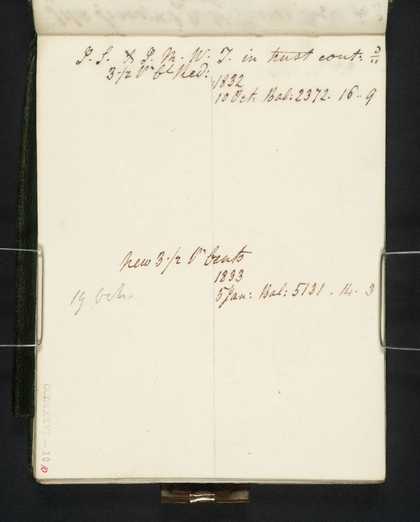 J. S. & J. M. W. T. in trust cont:
3 1/2 Pr Ct Red:
1832
10 Oct. Bal: 2372 - 16 - 9
New 3 1/2 Pr Cents
1833
5 Jan: Bal: 5131 - 14 - 3
19 Oct.